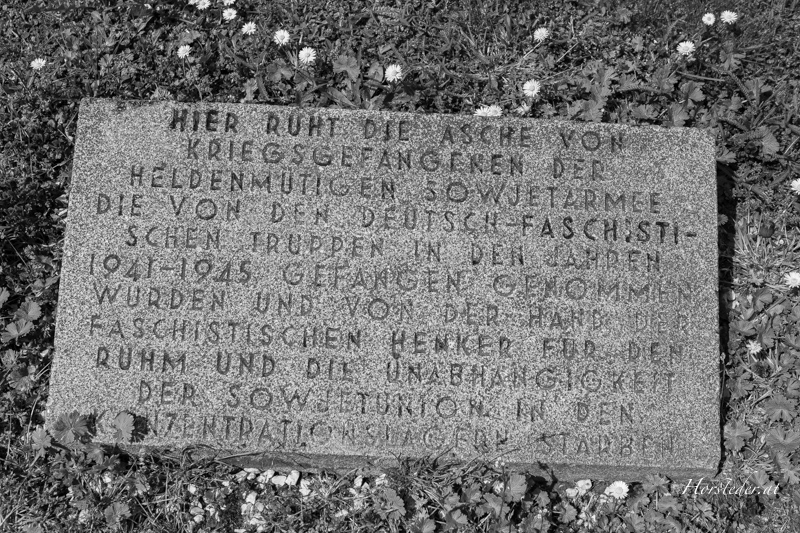 HIER RUHT DIE ASCHE VON
KRIEGSGEFANGENEN DER
HELDENMUTIGEN SOWJETARMEE
DIE VON DEN DEUTSCH-FASCHISTI-
SCHEN TRUPPEN IN DEN JAHREN
1941-1945 GEFANGEN GENOMMEN
WURDEN UND VON DER HAND DER
FASCHISTISCHEN HENKER FÜR DEN
RUHM UND DIE UNABHÄNGIGKEIT
DER SOWJETUNION IN DEN
KONZENTRATIONSLAGERN STARBEN
Horsteder.at